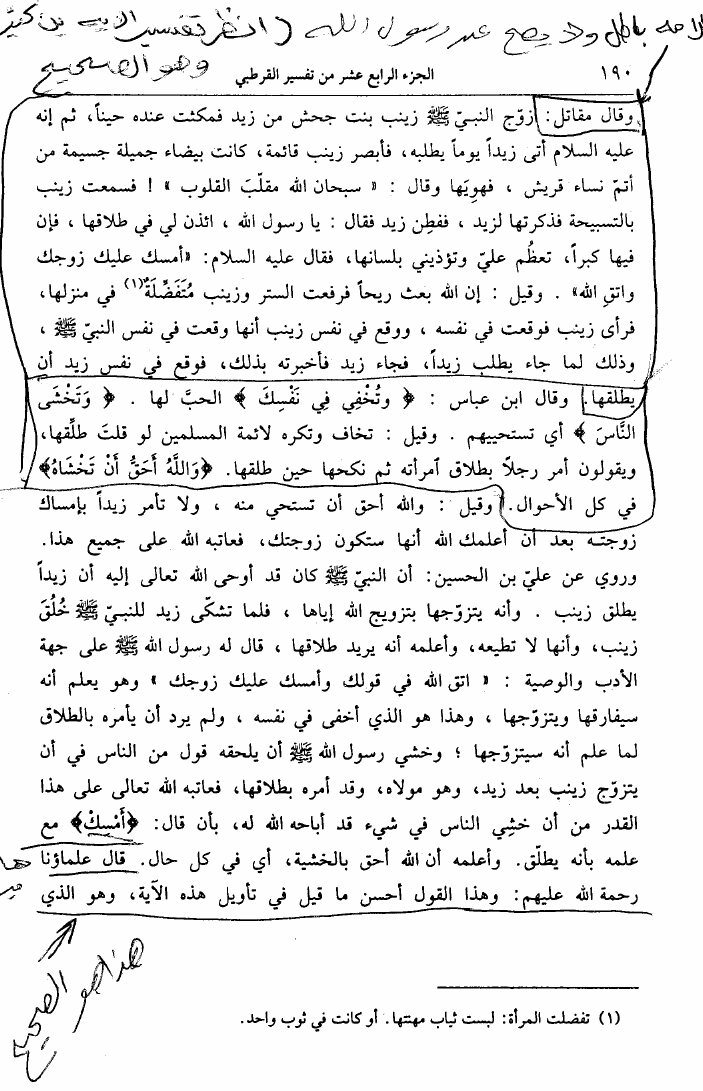 باطل ولا يصح عن رسول الله (انظر تفسير الآية ابن كثير
وهو الصحيح
١٩٠
الجزء الرابع عشر من تفسير القرطبي
وقال مقاتل: زوّج النبيّ ﷺ زينب بنت جحش من زيد فمكثت عنده حيناً، ثم إنه
عليه السلام أتى زيداً يوماً يطلبه، فأبصر زينب قائمة، كانت بيضاء جميلة جسيمة من
أتمّ نساء قريش ، فهوِيَها وقال : « سبحان الله مقلّبَ القلوب » ! فسمعت زينب
بالتسبيحة فذكرتها لزيد ، ففطِن زيد فقال : يا رسول الله ، ائذن لي في طلاقها ، فإن
فيها كبراً، تعظُم عليّ وتؤذيني بلسانها، فقال عليه السلام: «أمسك عليك زوجك
واتق الله» . وقيل : إن الله بعث ريحاً فرفعت الستر وزينب مُتَفَضِّلَةٌ(١) في منزلها،
فرأى زينب فوقعت في نفسه ، ووقع في نفس زينب أنها وقعت في نفس النبيّ ﷺ ،
وذلك لما جاء يطلب زيداً، فجاء زيد فأخبرته بذلك، فوقع في نفس زيد أن
يطلقها. وقال ابن عباس : ﴿ وَتُخْفِي فِي نَفْسِكَ ﴾ الحبَّ لها . ﴿ وَتَخْشَى
النَّاسَ ﴾ أي تستحييهم . وقيل : تخاف وتكره لائمة المسلمين لو قلتَ طلِّقها،
ويقولون أمر رجلاً بطلاق امرأته ثم نكحها حين طلقها. ﴿وَاللَّهُ أَحَقُّ أَنْ تَخْشَاهُ﴾
في كل الأحوال. وقيل : والله أحق أن تستحي منه ، ولا تأمر زيداً بإمساك
زوجته بعد أن أعلمك الله أنها ستكون زوجتك، فعاتبه الله على جميع هذا.
وروي عن عليّ بن الحسين: أن النبيّ ﷺ كان قد أوحى الله تعالى إليه أن زيداً
يطلق زينب . وأنه يتزوّجها بتزويج الله إياها ، فلما تشكّى زيد للنبيّ ﷺ خُلُقَ
زينب، وأنها لا تطيعه، وأعلمه أنه يريد طلاقها ، قال له رسول الله ﷺ على جهة
الأدب والوصية : « اتق الله في قولك وأمسك عليك زوجك » وهو يعلم أنه
سيفارقها ويتزوّجها ، وهذا هو الذي أخفى في نفسه ، ولم يرد أن يأمره بالطلاق
لما علم أنه سيتزوّجها ؛ وخشي رسول الله ﷺ أن يلحقه قول من الناس في أن
يتزوّج زينب بعد زيد، وهو مولاه، وقد أمره بطلاقها، فعاتبه الله تعالى على هذا
القدر من أن خشِي الناس في شيء قد أباحه الله له، بأن قال: ﴿أَمْسِكْ﴾ مع
علمه بأنه يطلّق. وأعلمه أن الله أحق بالخشية، أي في كل حال. قال علماؤنا
رحمة الله عليهم: وهذا القول أحسن ما قيل في تأويل هذه الآية، وهو الذي
هذا هو الصحيح
(١) تفضلت المرأة: لبست ثياب مهنتها. أو كانت في ثوب واحد.